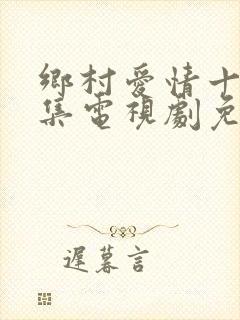 鄉村愛情十
集電視劇免
遲暮言